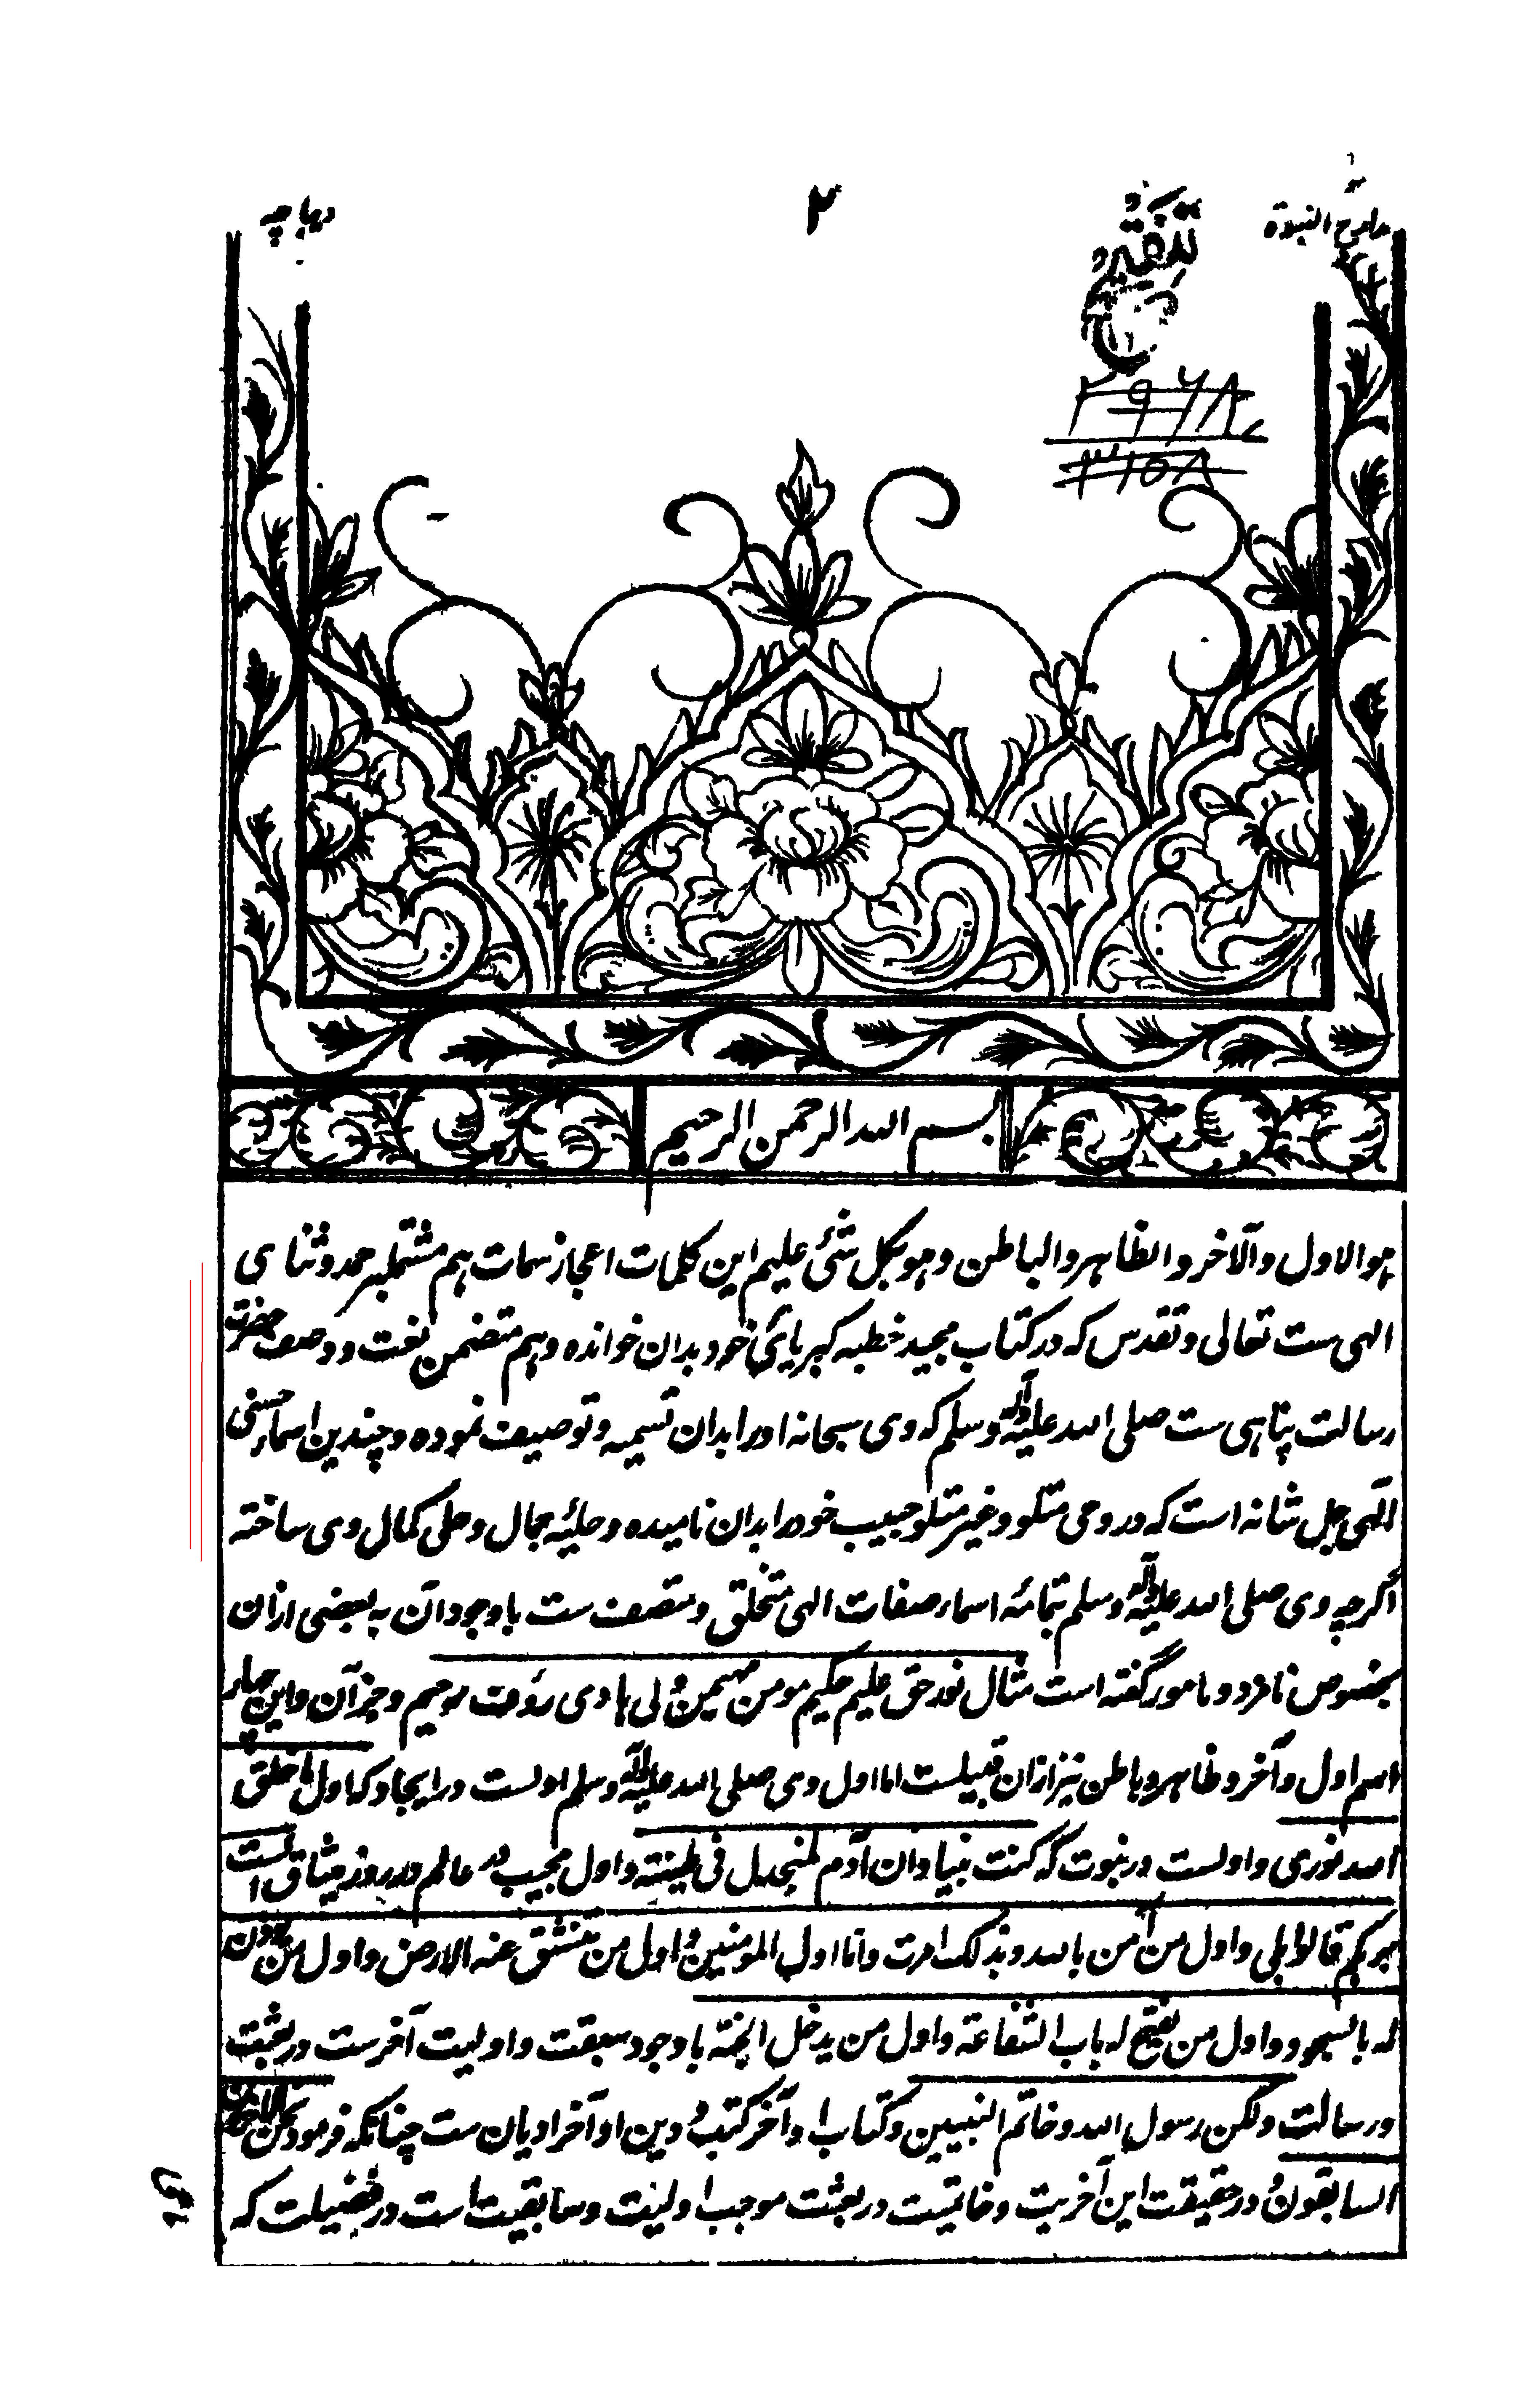 مدارج النبوة
۲
دیباچه
۲۹۶۸
۳۱۵۸
بسم الله الرحمن الرحیم
هو الاول والآخر والظاهر والباطن وهو بکل شئی علیم این کلمات اعجاز سمات هم مشتمل بر حمد و ثنای
الهی ست تعالی و تقدس که در کتاب مجید خطبه کبریائی خود بدان خوانده و هم متضمن نعت و وصف حضرت
رسالت پناهی ست صلی الله علیه وآله وسلم که وی سبحانه او را بدان تسمیه و توصیف نموده و چندین اسماء حسنی
الهی جل شانه است که در وحی متلو و غیر متلو حبیب خود را بدان نامیده و حلیۀ جمال و حلی کمال وی ساخته
اگرچه وی صلی الله علیه وآله وسلم بتمامۀ اسماء صفات الهی متخلق و متصف ست باوجود آن به بعضی ازان
بخصوص نامزد و نامور گفته است مثال نور حق علیم حکیم مومن مهیمن ولی هادی رؤف رحیم و جز آن و این چهار
اسم اول و آخر و ظاهر و باطن نیز ازان قبیلست اما اول وی صلی الله علیه وآله وسلم اولست در ایجاد که اول ما خلق
الله نوری و اولست در نبوت که کنت نبیا وان آدم لمنجدل فی طینته و اول مجیب در عالم در روز میثاق الست
بربکم قالوا بلی و اول من آمن بالله و بذلک امرت وانا اول المومنین و اول من تنشق عنه الارض و اول من یوذن
له بالسجود و اول من یفتح له باب الشفاعة و اول من یدخل الجنة باوجود سبقت و اولیت آخرست در بعثت
و رسالت ولکن رسول الله وخاتم النبیین و کتاب او آخر کتب و دین او آخر ادیان ست چنانکه فرمود نحن الآخرون
السابقون و در حقیقت این آخریت و خاتمیت در بعثت موجب اولیت و سابقیت است در فضیلت که